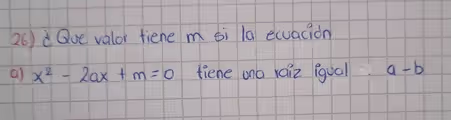 26) ¿ Que valor tiene m si la ecuación
a) x² - 2ax + m = 0 tiene una raíz igual a - b